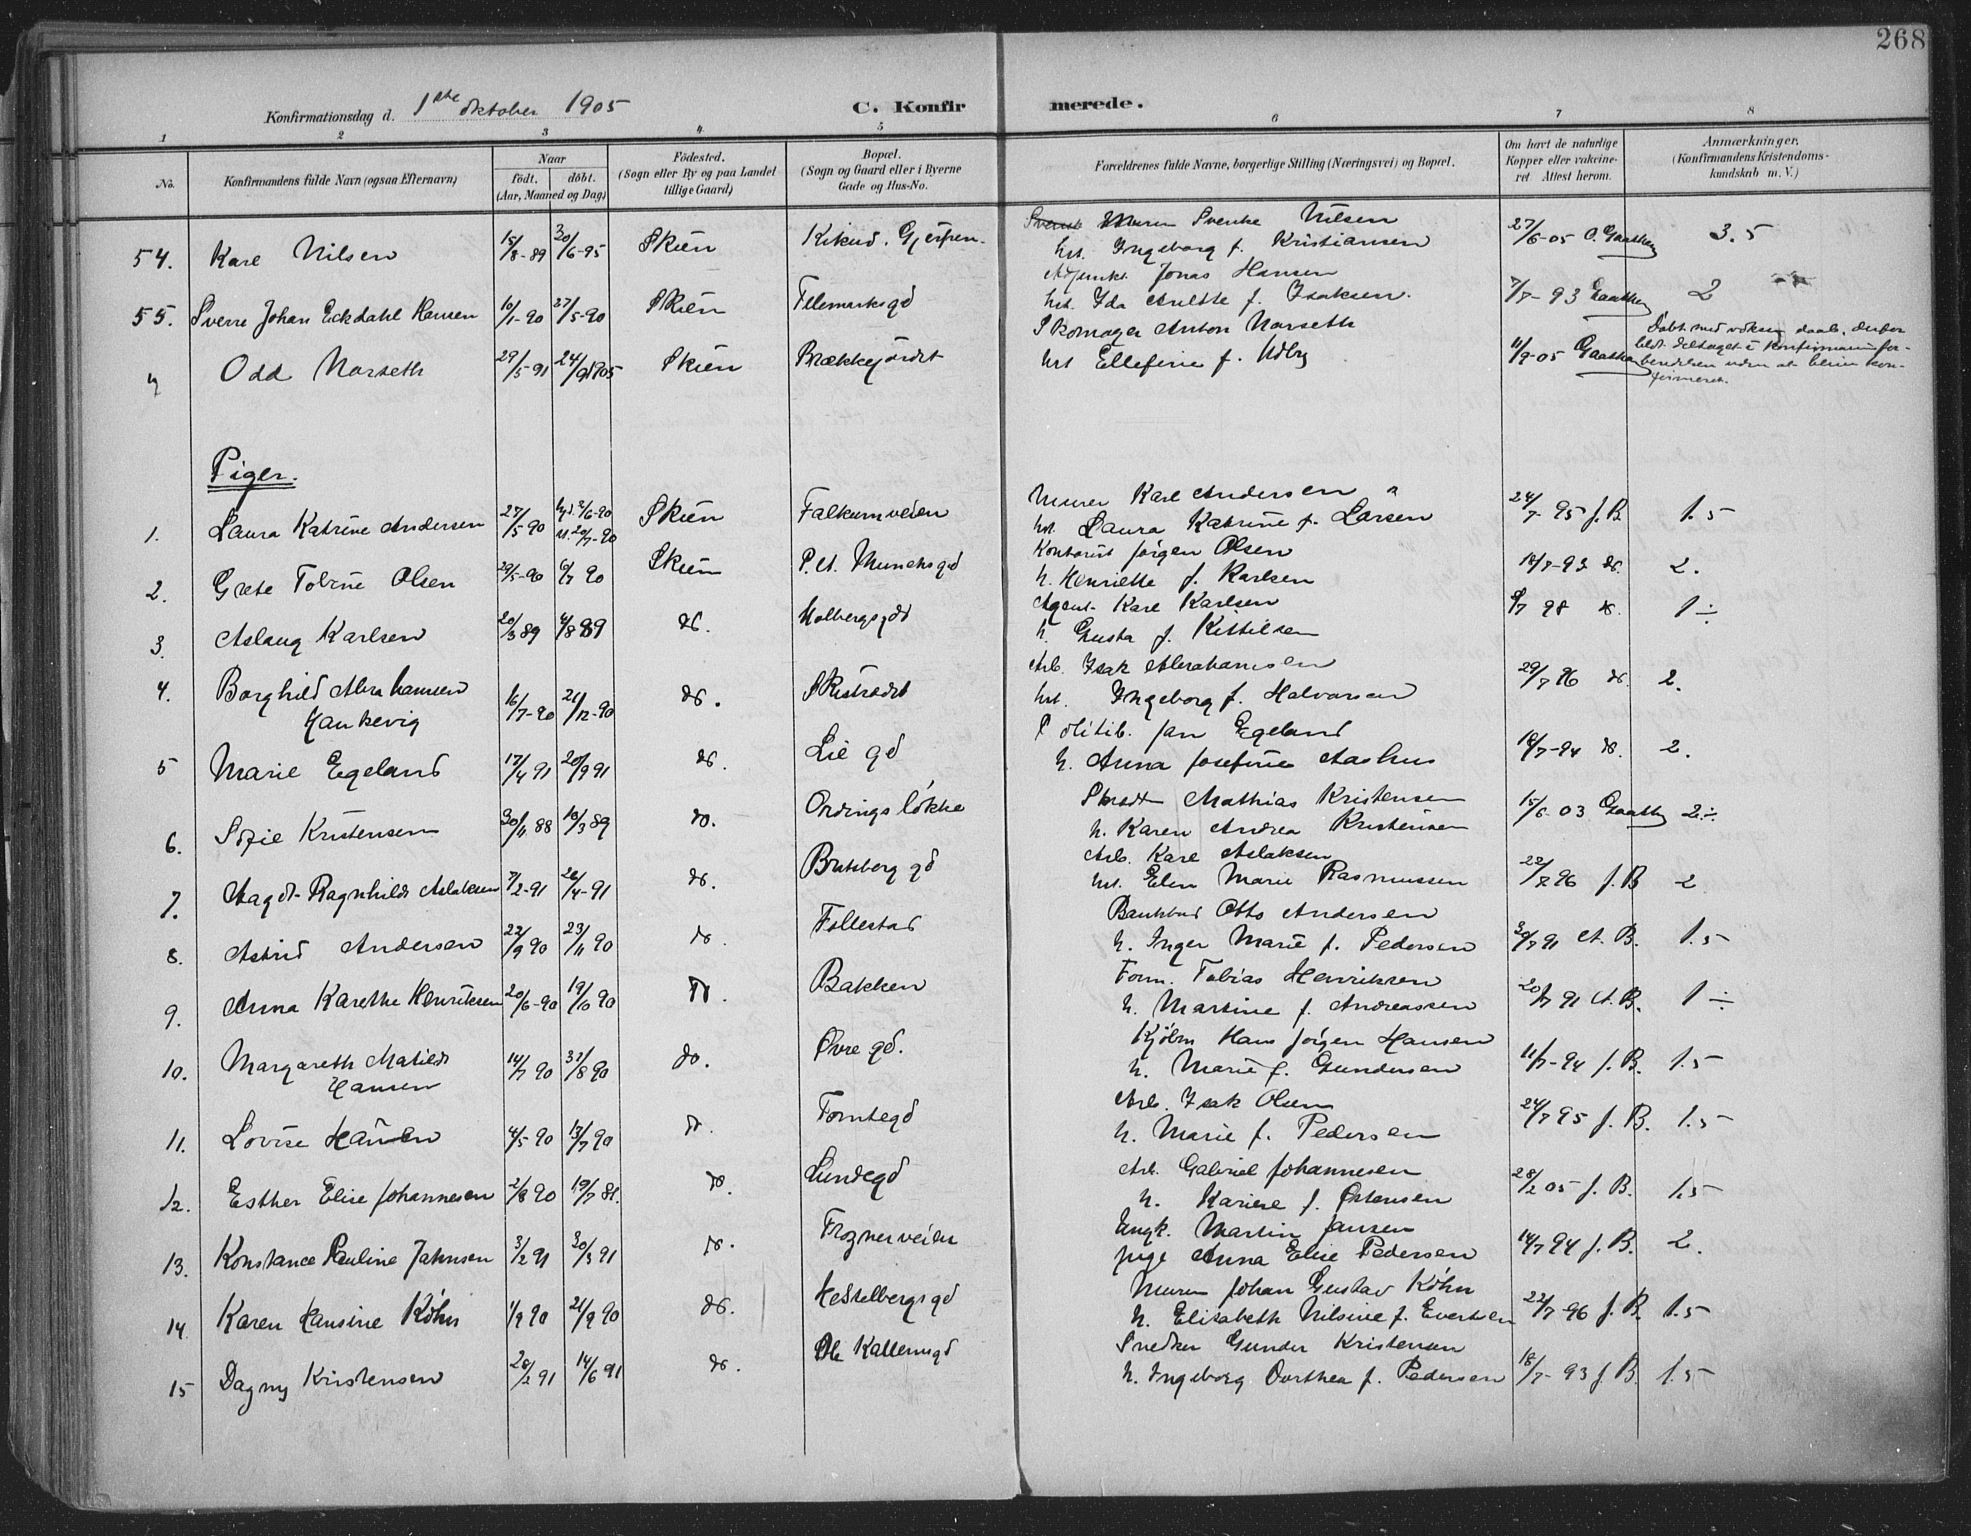 268
Konfirmationsdag d. 1ste Oktober 1905 C. Konfirmerede.
1 2 3 4 5 6 7 8
No. Konfirmandens fulde Navn (ogsaa Efternavn) Naar födt. döbt. (Aar, Maaned og Dag) Födested. (Sogn eller By og paa Landet tillige Gaard) Bopæl. (Sogn og Gaard eller i Byerne Gade og Hus-No. Forældrenes fulde Navne, borgerlige Stilling (Næringsvei) og Bopæl. Om havt de naturlige Kopper eller vakcineret Attest herom. Anmærkninger. (Konfirmandens Kristendomskundskab m. V.)
54. Kare Nilsen 15/8-89 30/6-95 Skien Gjerpen. Murer Svenke Nilsen
hst. Ingeborg f. Kristiansen 27/6-05 O. Gaathey 3.5
55. Sverre Johan Eckdahl Hansen 10/1-90 27/5-90 Skien Telemarksgd Adjunkt Jonas Hansen
hst. Ida Anette f. Isaksen. 7/7-93 Gaathey 2
Odd Narseth 29/5-91 24/9 1905 Skien Brækkejordet Skomager Anton Narseth
hst Ellefine f. Udby 11/9-05 Gaathey Døbt med voksen daab, derfor
blot deltaget i konfirmanfor-
beredelsen uden at blive kon-
firmeret.
Piger.
1. Laura Katrine Andersen 27/5 90 hjd 2/6-90 st. 20/7-90 Skien Falkumveien Murer Karl Andersen
hst. Laura Katrine f. Larsen 24/7-95 J.B. 1.5
2. Grete Tobine Olsen 29/5-90 6/7 90 Skien P. A. Munchsgd Kontorist Jørgen Olsen
h. Henriette f. Karlsen 14/7-93 do. 2.
3. Aslaug Karlsen 20/3 89 4/8 89 do. Holbergsgdt Agent Karl Karlsen
h. Gusta f. Kittilsen 8/7 98 do. 1÷
4. Borghild Abrahamsen
Hankevig 16/7-90 26/12-90 do. Skistrædet Arb. Isak Abrahamsen
hst. Ingeborg f. Halvorsen 29/7 96 do. 2.
5 Marie Egeland 17/4 91 20/9 91 do. Lie gd Politib. Jan Egeland
h. Anna Josefine Aashus 18/7-94 do. 2.
6. Sofie Kristensen 30/11 88 10/3 89 do. Ordings løkke Skredr Mathias Kristensen
h. Karen Andrea Kristensen 15/6-03 Gaathey 2÷
7. Aagot Ragnhild Aslaksen 7/2-91 26/4-91 do. Bratsberg gd Arb. Karl Aslaksen
hst. Elen Marie Rasmussen 22/7 96 J.B 2
8. Astrid Andersen 22/9 90 23/11 90 do. Follestad Bankbud Otto Andersen
h. Inger Marie f. Pedersen 30/7 91 A. B. 1.5
9. Anna Karethe Henriksen 20/6-90 19/10 90 do. Bakken Form. Tobias Henriksen
h. Martine f. Andreassen 20/7 91 A. B. 1÷
10. Margareth Matilde
Hansen 14/7 90 31/8 90 do. Øvre gd. Kjøbm Hans Jørgen Hansen
h. Marie f. Gundersen 11/7-94 J.B. 1.5
11. Lovise Hansen 4/5 90 13/7 90 do. Tomtegd Arb. Isak Olsen
h. Marie f. Pedersen 24/7 95 J.B. 1.5
12. Esther Elise Johannesen 2/8 90 19/7 do. Lundegd Arb. Gabriel Johannesen
h. Karine f. Østensen 28/2 05 J.B. 1.5
13. Konstance Pauline Jahnsen 3/2 91 30/3 91 do. Frognerveien Ungk. Martin Jansen
pige Anna Elise Pedersen 14/7 94 J.B. 2.
14 Karen Hansine Köhn 1/9 90 21/9 90 do. Hesselbergsgd Murer Johan Gustav Köhn
h. Elisabeth Nilsine f. Evertsen 22/7-96 J.B. 1.5
15 Dagny Kristensen 28/2 91 14/6 91 do. Kallemsgd Snedker Gunder Kristensen
h. Ingeborg Dorthea f. Pedersen 18/7-93 J.B. 1.5